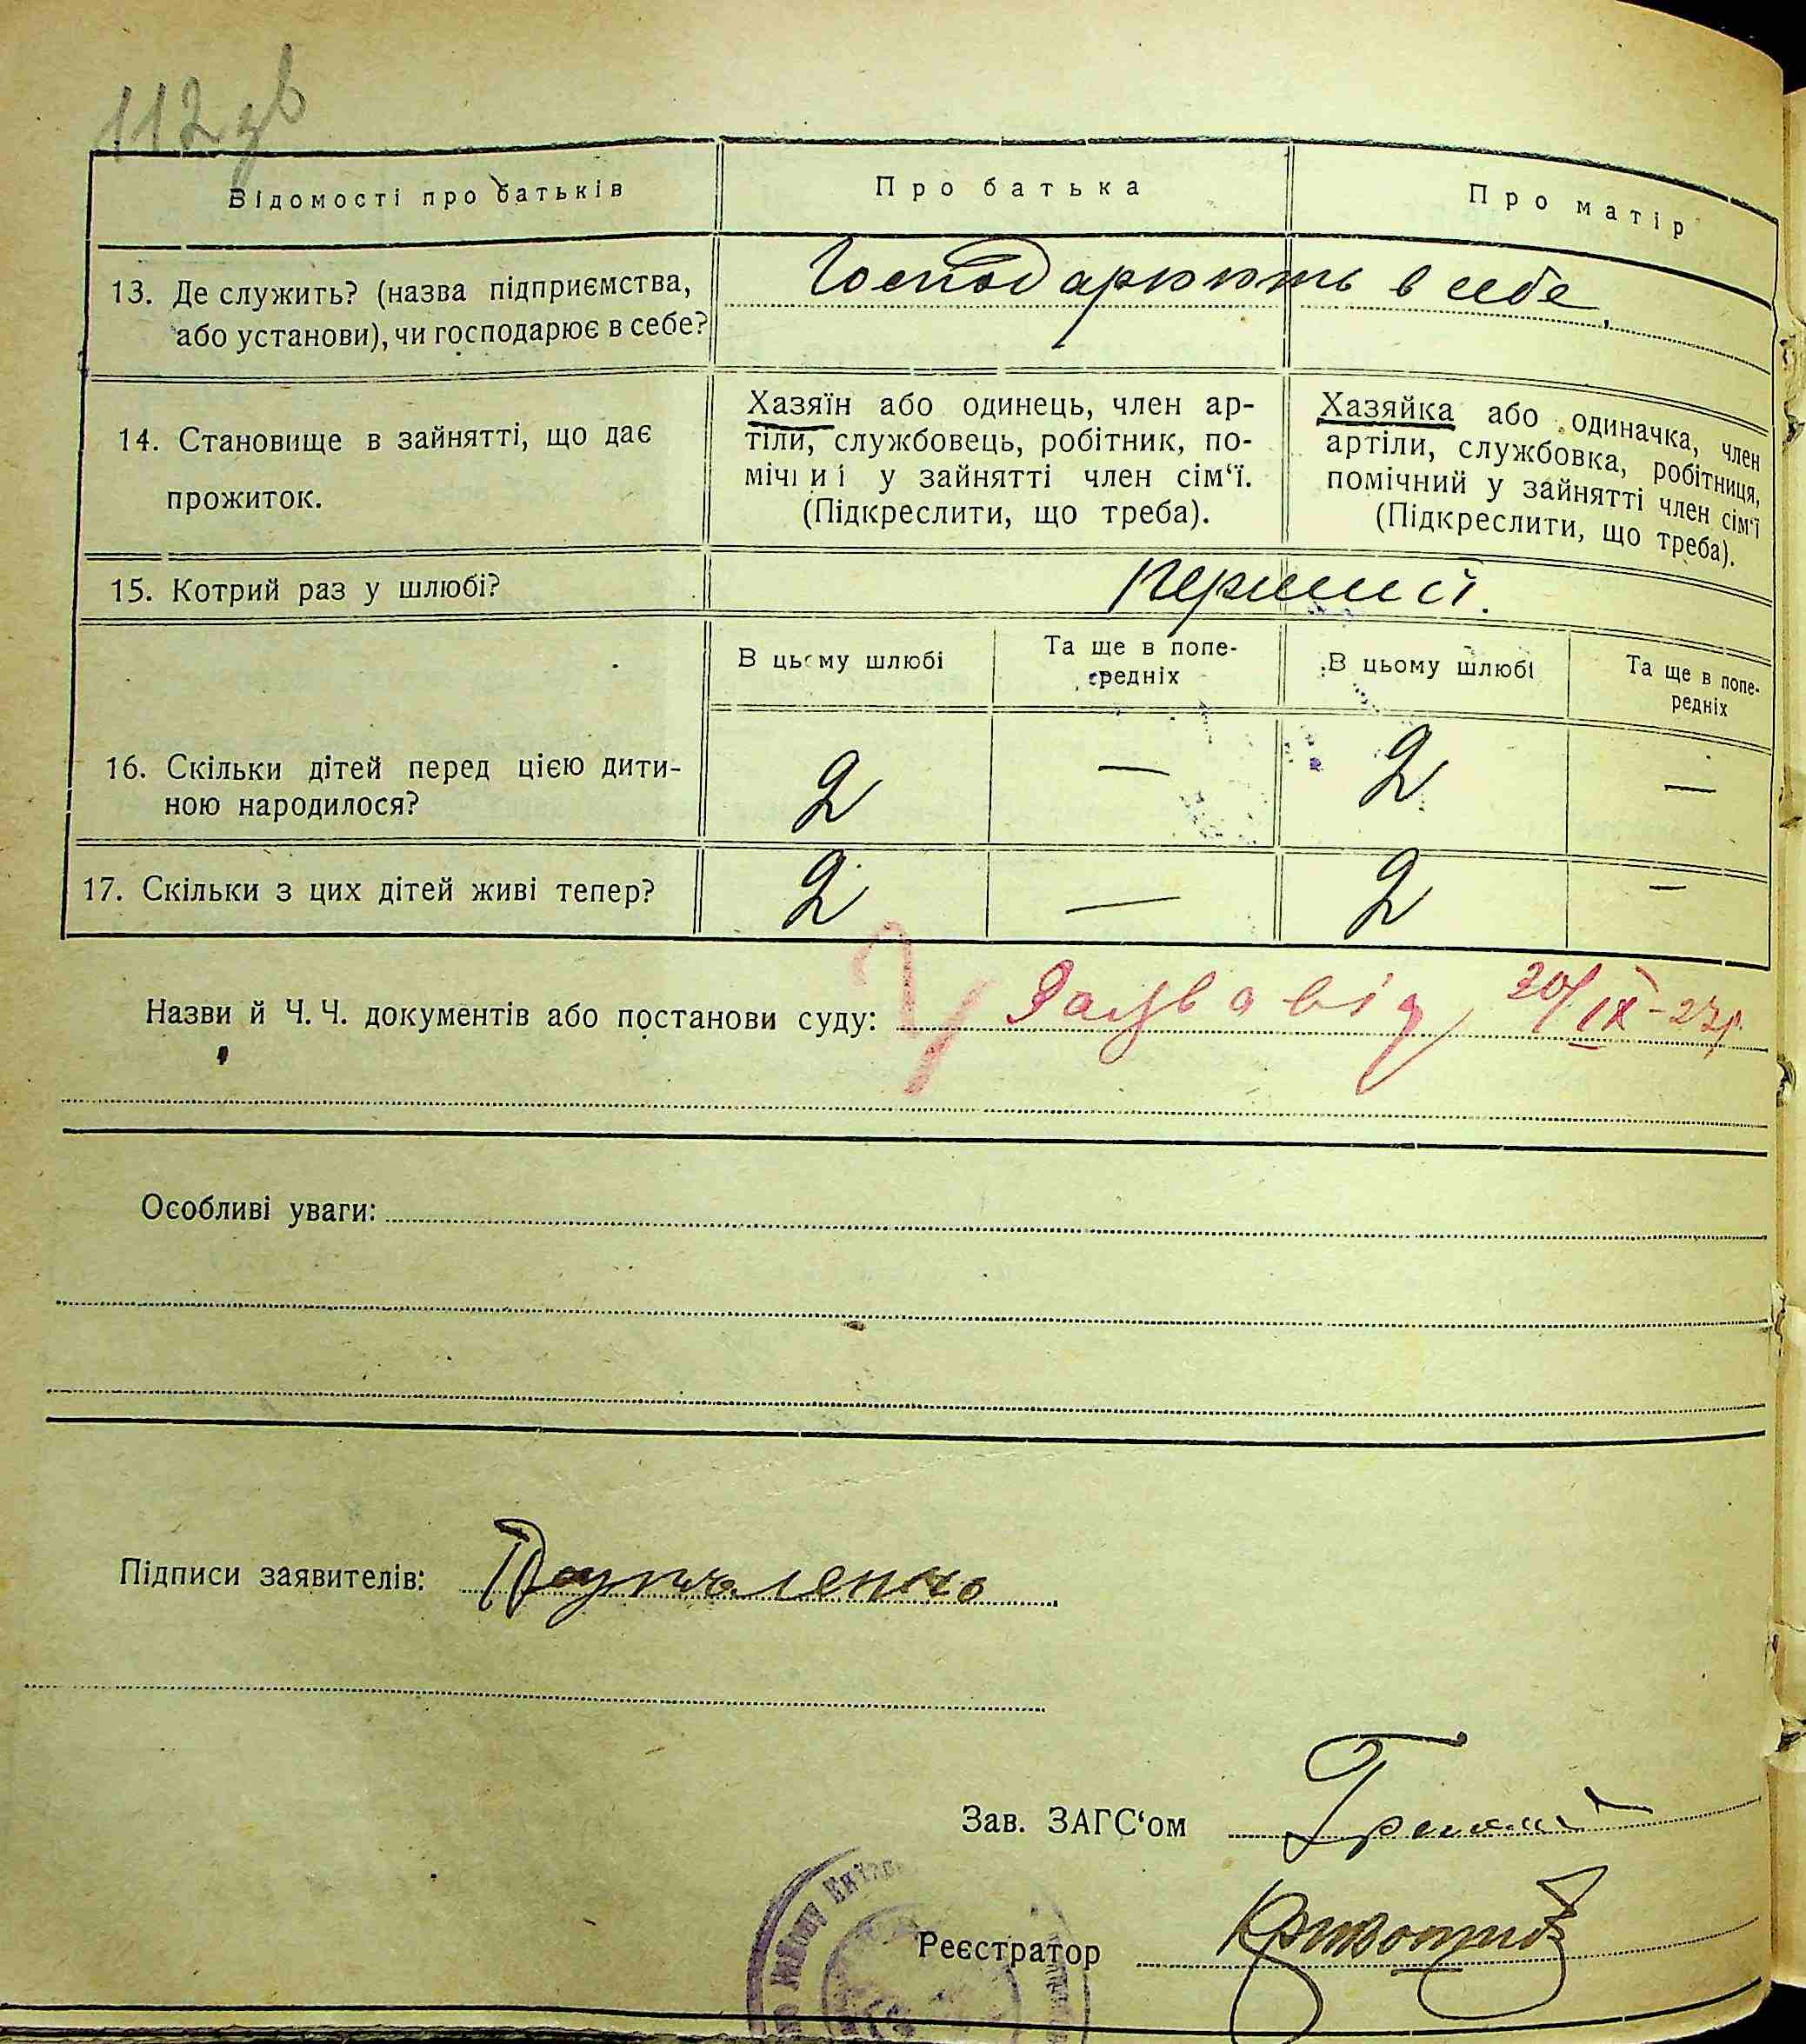 112 зв
Відомості про батьків
Про батька
Про матір
13. Де служить? (назва підприємства,
або установи), чи господарює в себе?
Господарюють в себе.
14. Становище в зайнятті, що дає
прожиток.
Хазяїн або одинець, член ар-
тіли, службовець, робітник, по-
мічниі у зайнятті член сім‘ї.
(Підкреслити, що треба).
Хазяйка або одиначка, член
артіли, службовка, робітниця,
помічний у зайнятті член сім‘ї
(Підкреслити, що треба).
15. Котрий раз у шлюбі?
перший.
В цьому шлюбі
Та ще в попе-
редніх
В цьому шлюбі
Та ще в попе-
редніх
16. Скільки дітей перед цією дити-
ною народилося?
2 — 2 —
17. Скільки з цих дітей живі тепер?
2 — 2 —
Назви й Ч. Ч. документів або постанови суду: Заява від /IX-27р.
Особливі уваги:
Підписи заявителів:
Зав. ЗАГС‘ом
Реєстратор